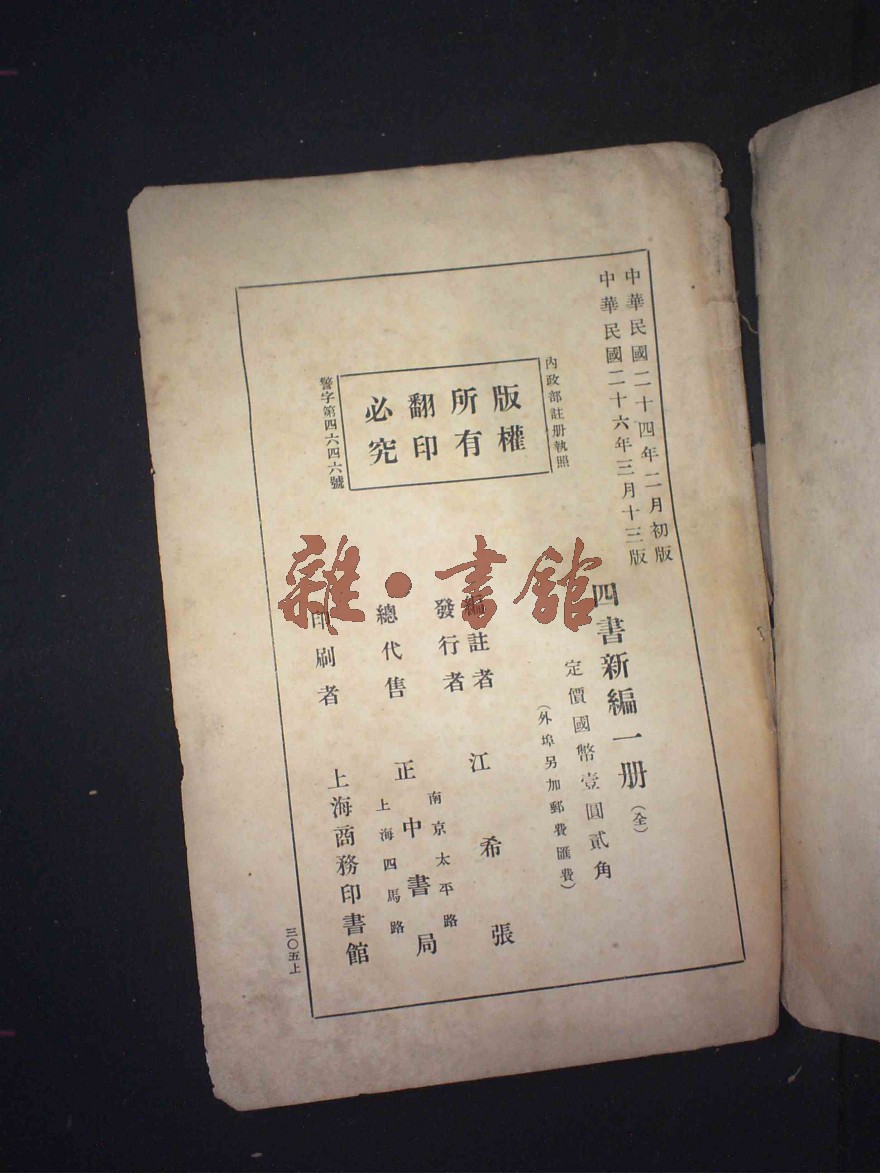 中華民國二十四年二月初版
中華民國二十六年三月十三版
四書新編一册(全)
定價國幣壹圓貳角
(外埠另加郵費匯費)
內政部註册執照
版權
所有
翻印
必究
警字第四六四六號
編註者 江希張
發行者
總代售 正中書局
南京太平路
上海四馬路
印刷者 上海商務印書館
三〇五上
雜·書館